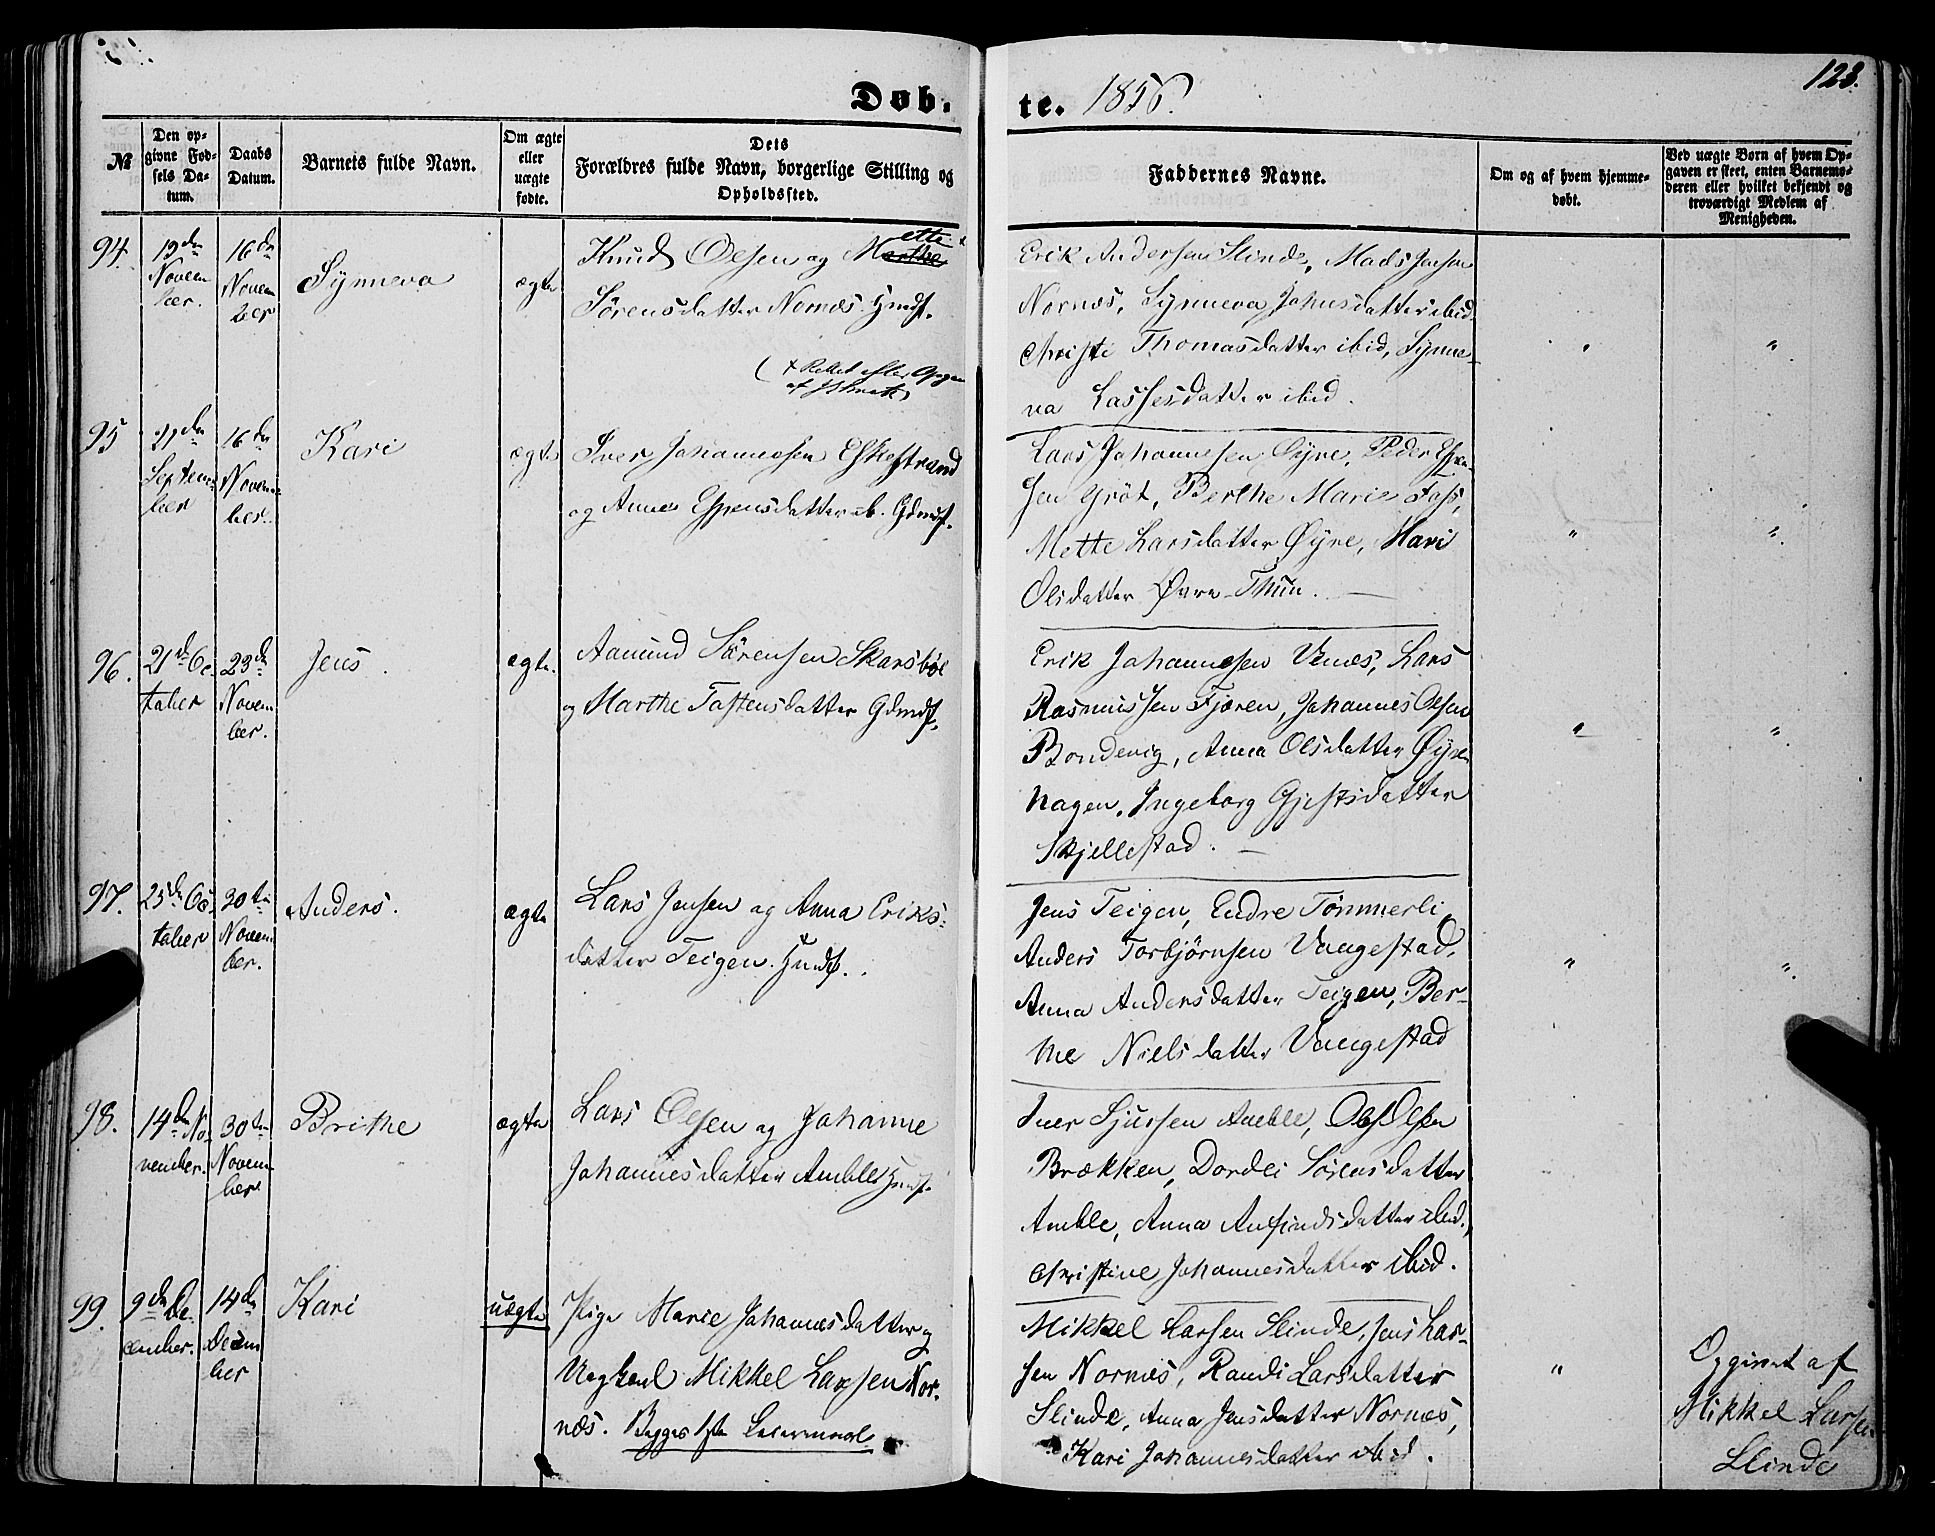 Døb-
te. 1856.
128.
№
Den op-
givne Fød-
sels Da-
tum.
Daabs
Datum.
Barnets fulde Navn.
Om ægte
eller
uægte
fødte.
Dets
Forældres fulde Navn, borgerlige Stilling og
Opholdssted.
Faddernes Navne.
Om og af hvem hjemme-
døbt.
Ved uægte Børn af hvem Op-
gaven er skeet, enten Barnemo-
deren eller hvilket bekjendt og
troværdigt Medlem af
Menigheden.
94.
13de
Novem
ber.
16de
Novem
ber
Synneva
ægte
Knud Olsen og Marthe ette
Sørensdatter Nornæs. Hmdf.
(+ Rettet efter Opgave
af
Erik Andersen Slinde, Mads Jensen
Nornæs, Synneva Johnsdatter ibid
Christi Thomasdatter ibid, Synne-
va Lassesdatter ibid.
"
95
21de
Septem
ber
16de
Novem-
ber.
Kari
ægte
Iver Johannesen Eskestrand
og Anna Espensdatter ib. Gdmdf.
Lars Johannesen Øyre, Peder Espen-
sen Grøt, Berthe Marie Foss,
Mette Larsdatter Øyre, Mari
Olsdatter Øvre-Thun.
"
"
96.
21de Oc
tober
23de
Novem
ber.
Jens
ægte.
Aamund Sørensen Skarsbøe
og Marthe Tostensdatter Gdmdf.
Erik Johannesen Venæs, Lars
Rasmussen Fjæren, Johannes Olsen
Bondevig, Anna Olsdatter Øyre
hagen, Ingeborg Gjestsdatter
Skjellestad.
"
"
97.
25de Oc
tober
30te
Novem
ber.
Anders.
ægte
Lars Jensen og Anna Eriks-
datter Teigen. Hmdf.
Jens Teigen, Endre Tømmerli,
Anders Torbjørnsen Vangestad,
Anna Andersdatter Teigen, Ber-
the Nielsdatter Vangestad
"
"
98.
14de No
vember.
30te
Novem
ber
Brithe
ægte
Lars Olsen og Johanne
Johannesdatter Amble Hmdf.
Iver Sjursen Amble, Ole Olsen
Brækken, Dordei Sørensdatter
Amble, Anna Anfindsdatter ibid.,
Christine Johannesdatter ibid.
99.
9de De-
cember.
14de
Decem
ber
Kari
uægte
Pige Marie Johannesdatter og
Ungkarl Mikkel Larsen Nor-
næs. Begges 1ste Leiermaal
Mikkel Larsen Slinde, Jens Lar-
sen Nornæs, Randi Larsdatter
Slinde, Anna Jensdatter Nornæs,
Kari Johannesdatter ibid.
"
Opgivet af
Mikkel Larsen
Slinde